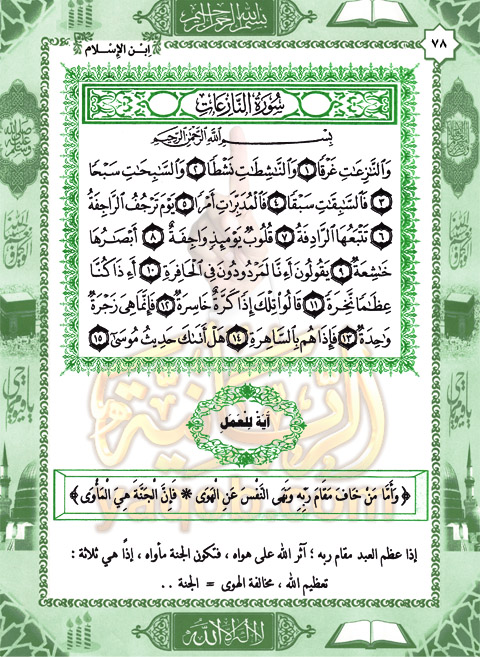 بسم الله الرحمن الرحيم
٧٨
ابن الإسلام
سُورَةُ النَّازِعَاتِ
بِسْمِ اللَّهِ الرَّحْمَٰنِ الرَّحِيمِ
وَالنَّٰزِعَٰتِ غَرْقًا ١ وَالنَّٰشِطَٰتِ نَشْطًا ٢ وَالسَّٰبِحَٰتِ سَبْحًا
٣ فَالسَّٰبِقَٰتِ سَبْقًا ٤ فَالْمُدَبِّرَٰتِ أَمْرًا ٥ يَوْمَ تَرْجُفُ الرَّاجِفَةُ
٦ تَتْبَعُهَا الرَّادِفَةُ ٧ قُلُوبٌ يَوْمَئِذٍ وَاجِفَةٌ ٨ أَبْصَٰرُهَا
خَٰشِعَةٌ ٩ يَقُولُونَ أَءِنَّا لَمَرْدُودُونَ فِي الْحَافِرَةِ ١٠ أَءِذَا كُنَّا
عِظَٰمًا نَّخِرَةً ١١ قَالُوا تِلْكَ إِذًا كَرَّةٌ خَاسِرَةٌ ١٢ فَإِنَّمَا هِيَ زَجْرَةٌ
وَٰحِدَةٌ ١٣ فَإِذَا هُم بِالسَّاهِرَةِ ١٤ هَلْ أَتَىٰكَ حَدِيثُ مُوسَىٰ ١٥
آيَةٌ لِلْعَمَلِ
﴿ وَأَمَّا مَنْ خَافَ مَقَامَ رَبِّهِ وَنَهَى النَّفْسَ عَنِ الْهَوَى * فَإِنَّ الْجَنَّةَ هِيَ الْمَأْوَى ﴾
إذا عظم العبد مقام ربه ؛ آثر الله على هواه ، فتكون الجنة مأواه ، إذًا هي ثلاثة :
تعظيم الله ، مخالفة الهوى = الجنة ..
لا إله إلا الله